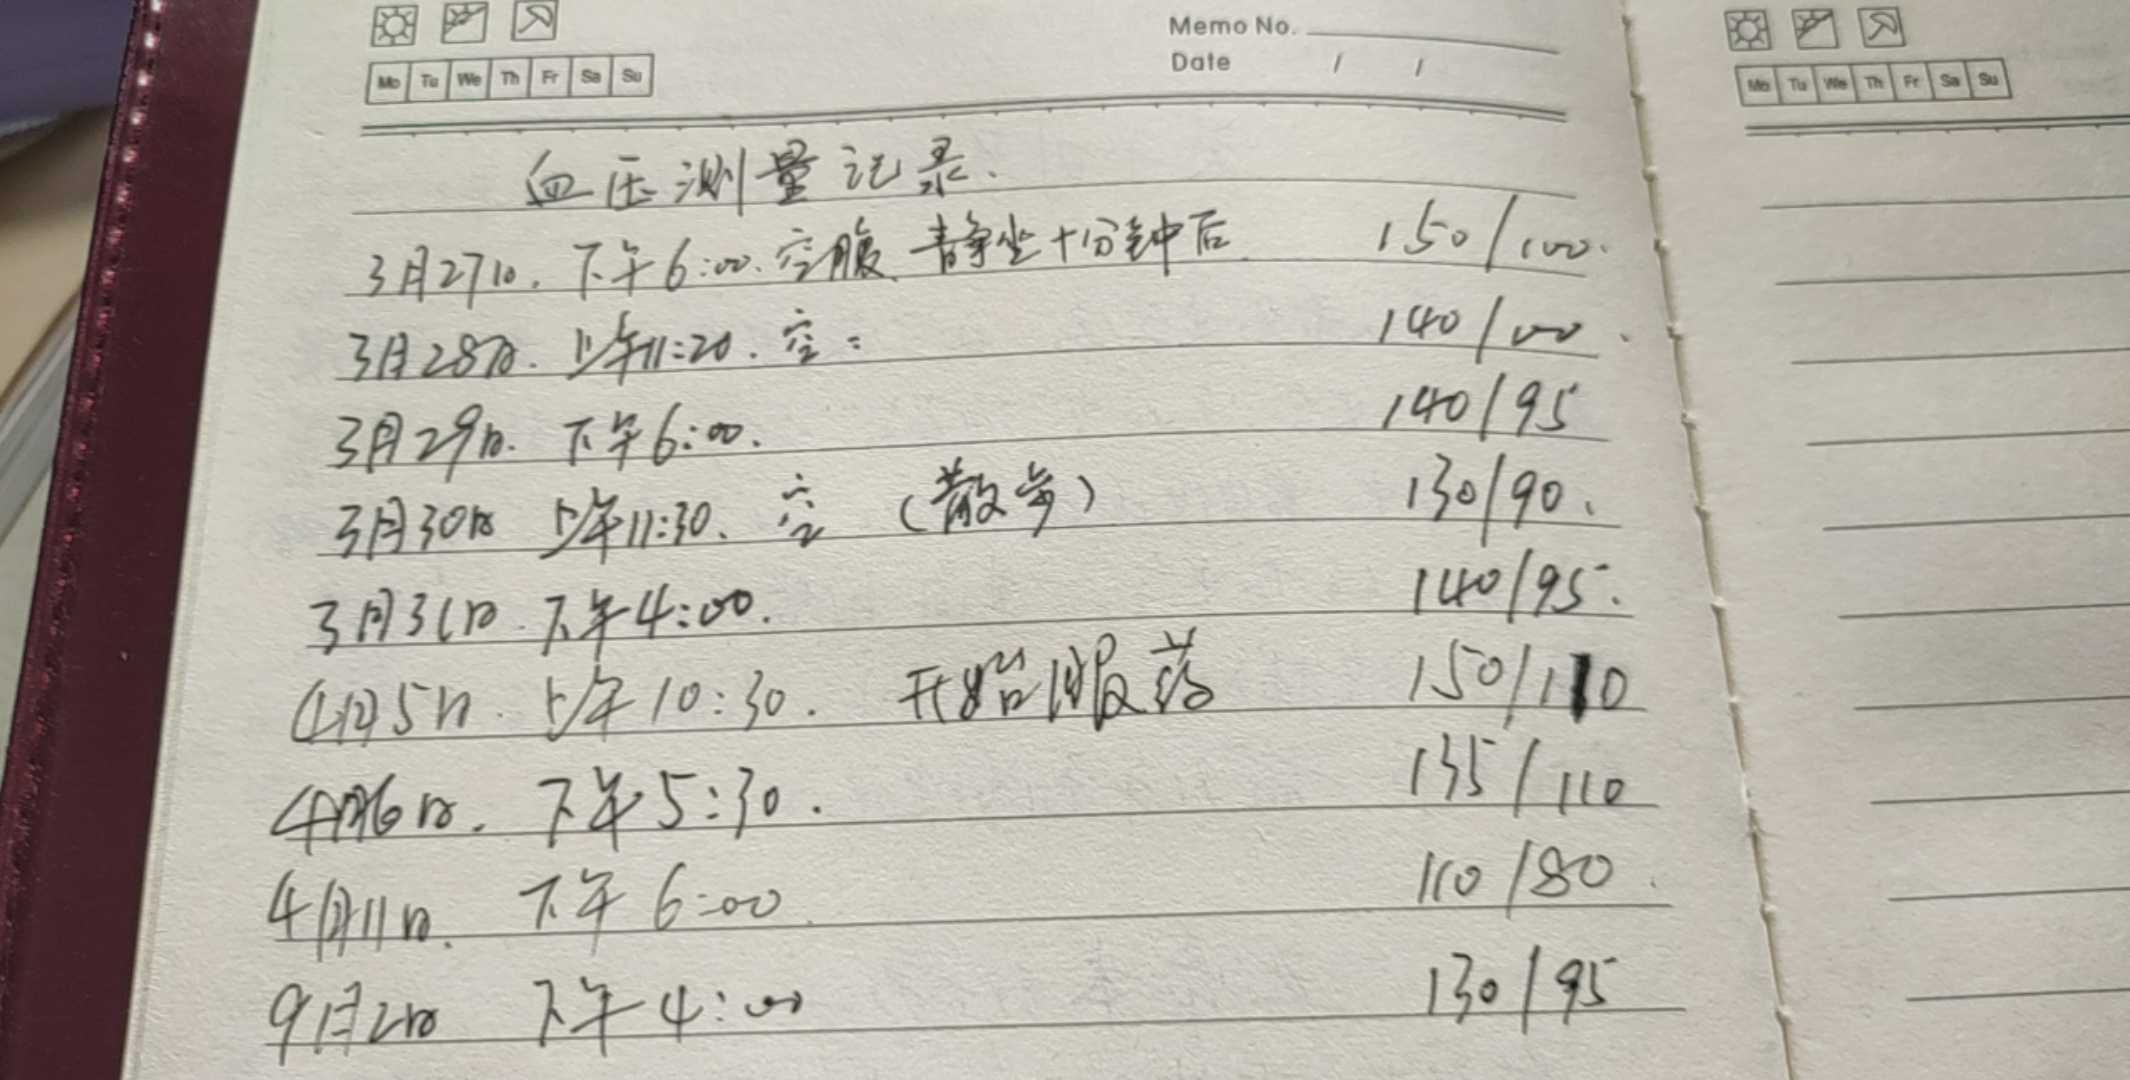 Memo No.
Date / /
Mo Tu We Th Fr Sa Su
血压测量记录.
3月27日. 下午6:00. 空腹 静坐十分钟后 150/100.
3月28日. 上午11:20. 空: 140/100.
3月29日. 下午6:00. 140/95
3月30日 上午11:30. 空 (散步) 130/90.
3月31日. 下午4:00. 140/95.
4月5日. 上午10:30. 开始服药 150/110
4月6日. 下午5:30. 135/110
4月11日. 下午6:00 110/80.
9月2日 下午4:00 130/95
Mo Tu We Th Fr Sa Su